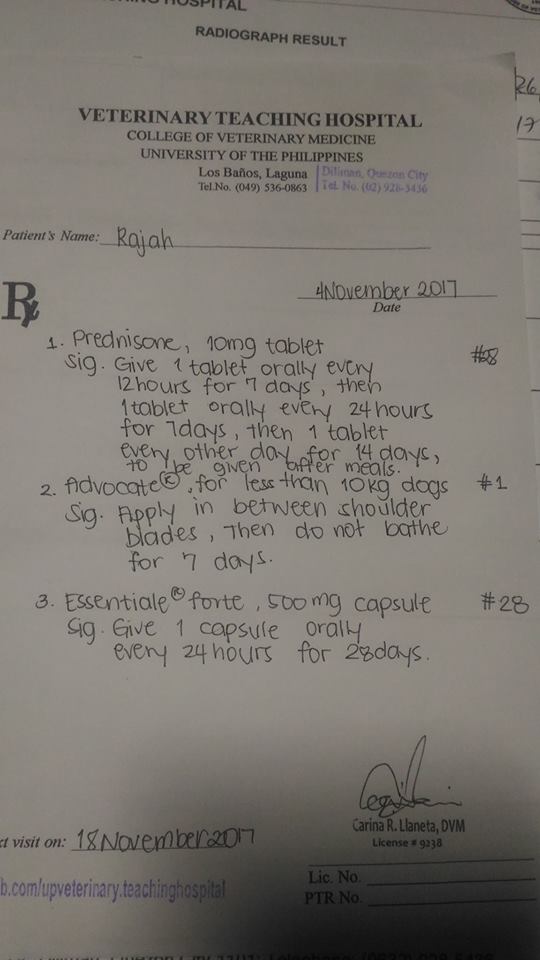 HOSPITAL
RADIOGRAPH RESULT
26
17
VETERINARY TEACHING HOSPITAL
COLLEGE OF VETERINARY MEDICINE
UNIVERSITY OF THE PHILIPPINES
Los Baños, Laguna Diliman, Quezon City
Tel.No. (049) 536-0863 Tel. No. (02) 928-3436
Patient's Name: Rajah
Rx
4November 2017
Date
1. Prednisone, 10mg tablet #28
Sig. Give 1 tablet orally every
12hours for 7 days, then
1tablet orally every 24hours
for 7days, then 1 tablet
every other day for 14 days,
to be given after meals.
2. Advocate®, for less than 10kg dogs #1
Sig. Apply in between shoulder
blades, Then do not bathe
for 7 days.
3. Essentiale® forte, 500mg capsule #28
Sig. Give 1 capsule orally
every 24hours for 28days.
Carina R. Llaneta, DVM
License # 9238
t visit on: 18November2017
Lic. No.
b.com/upveterinary.teachinghospital
PTR No.